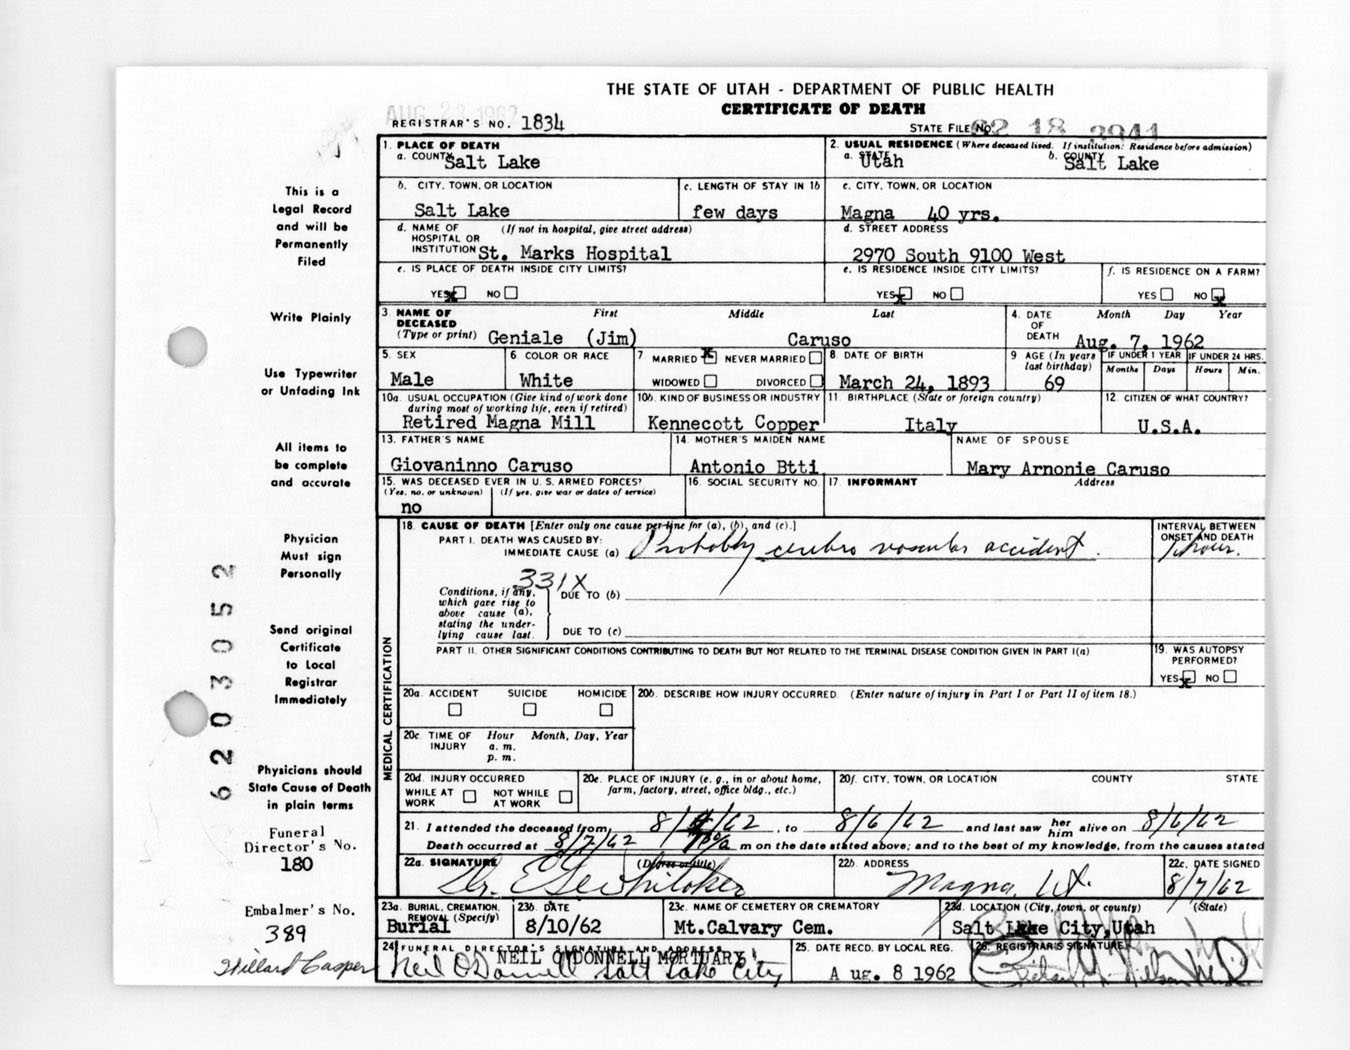 THE STATE OF UTAH - DEPARTMENT OF PUBLIC HEALTH
CERTIFICATE OF DEATH
AUG 22 1962
REGISTRAR'S NO. 1834
STATE FILE NO. 62 18 2041
This is a
Legal Record
and will be
Permanently
Filed
Write Plainly
Use Typewriter
or Unfading Ink
All items to
be complete
and accurate
Physician
Must sign
Personally
Send original
Certificate
to Local
Registrar
Immediately
Physicians should
State Cause of Death
in plain terms
Funeral
Director's No.
180
Embalmer's No.
389
Willard Casper
6203052
1. PLACE OF DEATH
a. COUNTY Salt Lake
2. USUAL RESIDENCE (Where deceased lived. If institution: Residence before admission)
a. STATE Utah b. COUNTY Salt Lake
b. CITY, TOWN, OR LOCATION
Salt Lake
c. LENGTH OF STAY IN 1b
few days
c. CITY, TOWN, OR LOCATION
Magna 40 yrs.
d. NAME OF HOSPITAL OR INSTITUTION (If not in hospital, give street address)
St. Marks Hospital
d. STREET ADDRESS
2970 South 9100 West
e. IS PLACE OF DEATH INSIDE CITY LIMITS?
YES x NO
e. IS RESIDENCE INSIDE CITY LIMITS?
YES x NO
f. IS RESIDENCE ON A FARM?
YES NO x
3. NAME OF DECEASED (Type or print) First Middle Last
Geniale (Jim) Caruso
4. DATE OF DEATH Month Day Year
Aug. 7, 1962
5. SEX
Male
6. COLOR OR RACE
White
7 MARRIED x NEVER MARRIED
WIDOWED DIVORCED
8. DATE OF BIRTH
March 24, 1893
9 AGE (In years last birthday)
69
IF UNDER 1 YEAR IF UNDER 24 HRS.
Months Days Hours Min.
10a. USUAL OCCUPATION (Give kind of work done during most of working life, even if retired)
Retired Magna Mill
10b. KIND OF BUSINESS OR INDUSTRY
Kennecott Copper
11. BIRTHPLACE (State or foreign country)
Italy
12. CITIZEN OF WHAT COUNTRY?
U.S.A.
13. FATHER'S NAME
Giovaninno Caruso
14. MOTHER'S MAIDEN NAME
Antonio Btti
NAME OF SPOUSE
Mary Arnonie Caruso
15. WAS DECEASED EVER IN U.S. ARMED FORCES?
(Yes, no, or unknown) (If yes, give war or dates of service)
no
16. SOCIAL SECURITY NO.
17. INFORMANT Address
MEDICAL CERTIFICATION
18. CAUSE OF DEATH [Enter only one cause per line for (a), (b), and (c).]
PART I. DEATH WAS CAUSED BY:
IMMEDIATE CAUSE (a) Probably cerebro vascular accident.
INTERVAL BETWEEN ONSET AND DEATH
1 hour.
331X
Conditions, if any, which gave rise to above cause (a), stating the underlying cause last.
DUE TO (b)
DUE TO (c)
PART II. OTHER SIGNIFICANT CONDITIONS CONTRIBUTING TO DEATH BUT NOT RELATED TO THE TERMINAL DISEASE CONDITION GIVEN IN PART I(a)
19. WAS AUTOPSY PERFORMED?
YES x NO
20a. ACCIDENT SUICIDE HOMICIDE
20b. DESCRIBE HOW INJURY OCCURRED. (Enter nature of injury in Part I or Part II of item 18.)
20c. TIME OF INJURY Hour Month, Day, Year
a. m.
p. m.
20d. INJURY OCCURRED
WHILE AT WORK NOT WHILE AT WORK
20e. PLACE OF INJURY (e. g., in or about home, farm, factory, street, office bldg., etc.)
20f. CITY, TOWN, OR LOCATION COUNTY STATE
21. I attended the deceased from, to 8/6/62 and last saw her him alive on 8/6/62
Death occurred at 8/7/62 m on the date stated above; and to the best of my knowledge, from the causes stated
22a. SIGNATURE (Degree or title)
Dr. Whitaker
22b. ADDRESS
Magna, Ut.
22c. DATE SIGNED
8/7/62
23a. BURIAL, CREMATION, REMOVAL (Specify)
Burial
23b. DATE
8/10/62
23c. NAME OF CEMETERY OR CREMATORY
Mt.Calvary Cem.
23d. LOCATION (City, town, or county) (State)
Salt Lake City,Utah
24. FUNERAL DIRECTOR'S SIGNATURE AND ADDRESS
NEIL O'DONNELL MORTUARY
Neil O'Donnell Salt Lake City
25. DATE RECD. BY LOCAL REG.
Aug. 8 1962
26. REGISTRAR'S SIGNATURE